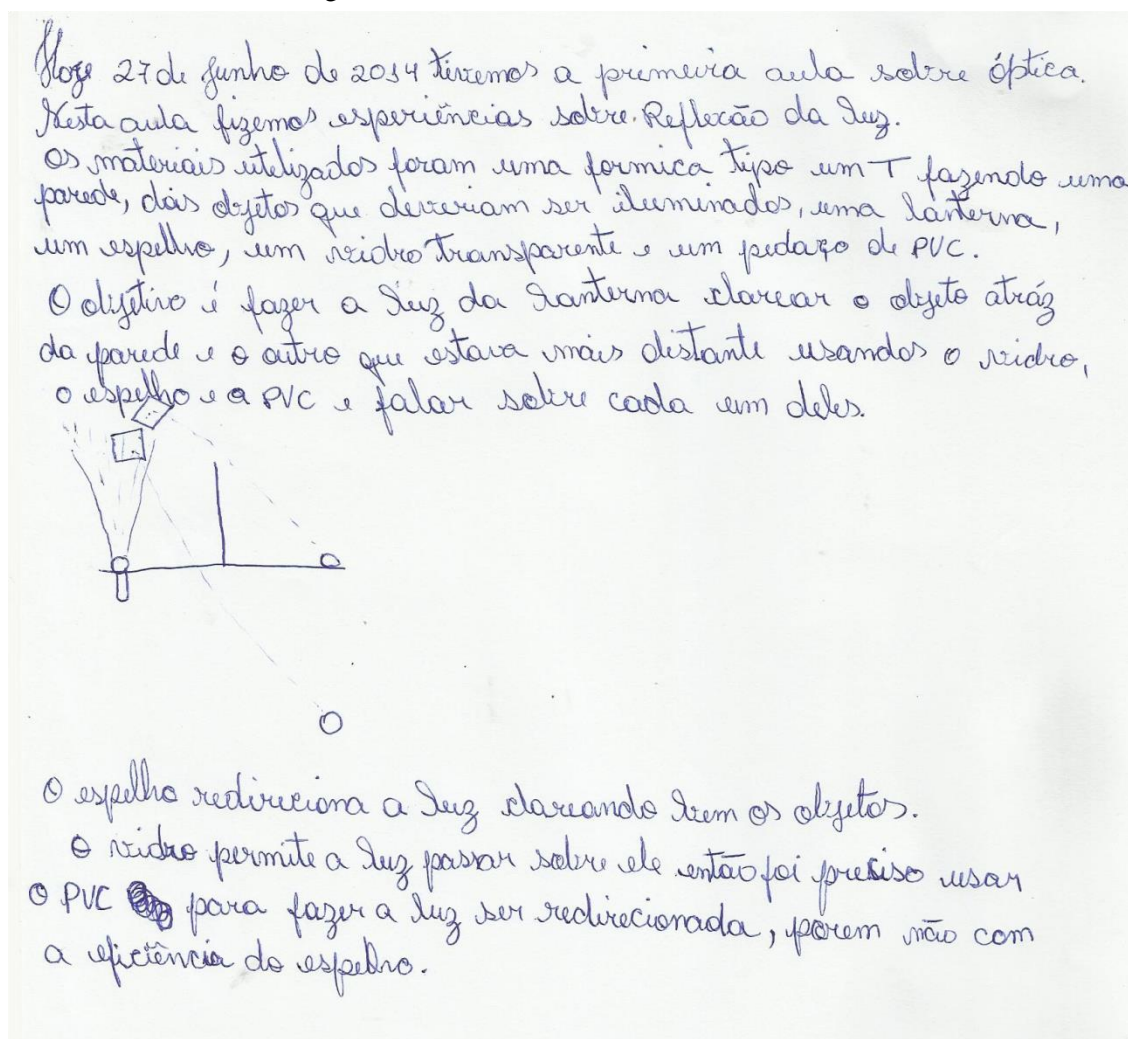 Hoje 27 de Junho de 2014 tivemos a primeira aula sobre óptica.
Nesta aula fizemos esperiências sobre. Reflexão da luz.
Os materiais utelizados foram uma formica tipo um T fazendo uma
parede, dois objetos que deveriam ser iluminados, uma lanterna,
um espelho, um vidro transparente e um pedaço de PVC.
O objetivo é fazer a luz da lanterna clarear o objeto atráz
da parede e o outro que estava mais distante usandos o vidro,
o espelho e a PVC e falar sobre cada um deles.
O espelho redireciona a luz clareando bem os objetos.
O vidro permite a luz passar sobre ele então foi preciso usar
O PVC para fazer a luz ser redirecionada, porem não com
a eficiência do espelho.